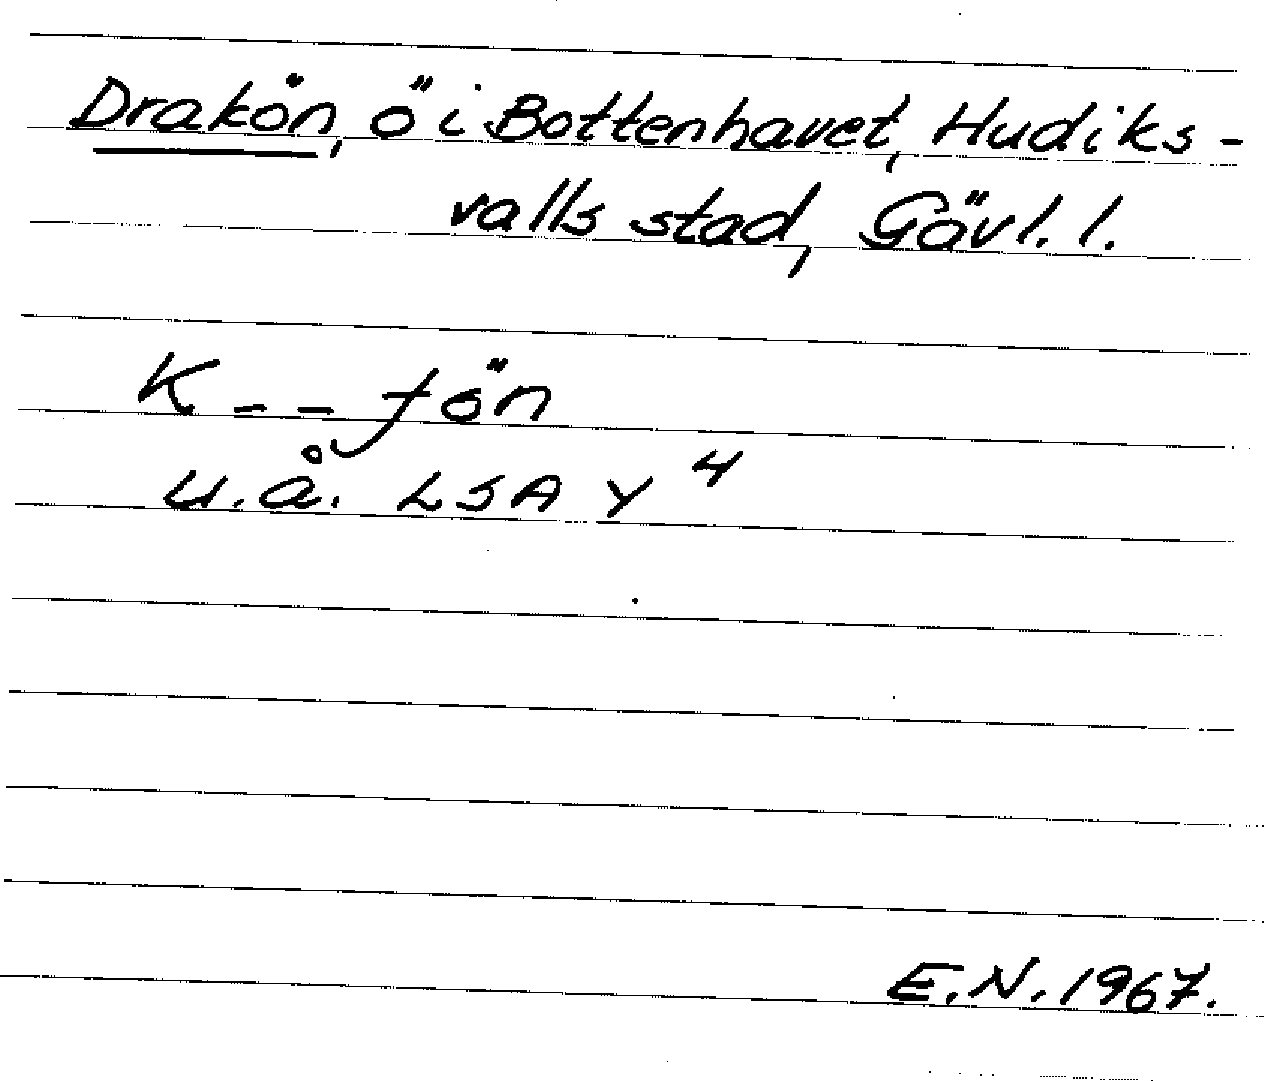 Drakön, ö i Bottenhavet, Hudiks-
valls stad, Gävl. l.
K -- fön
u.å. LSA Y 4
E.N. 1967.